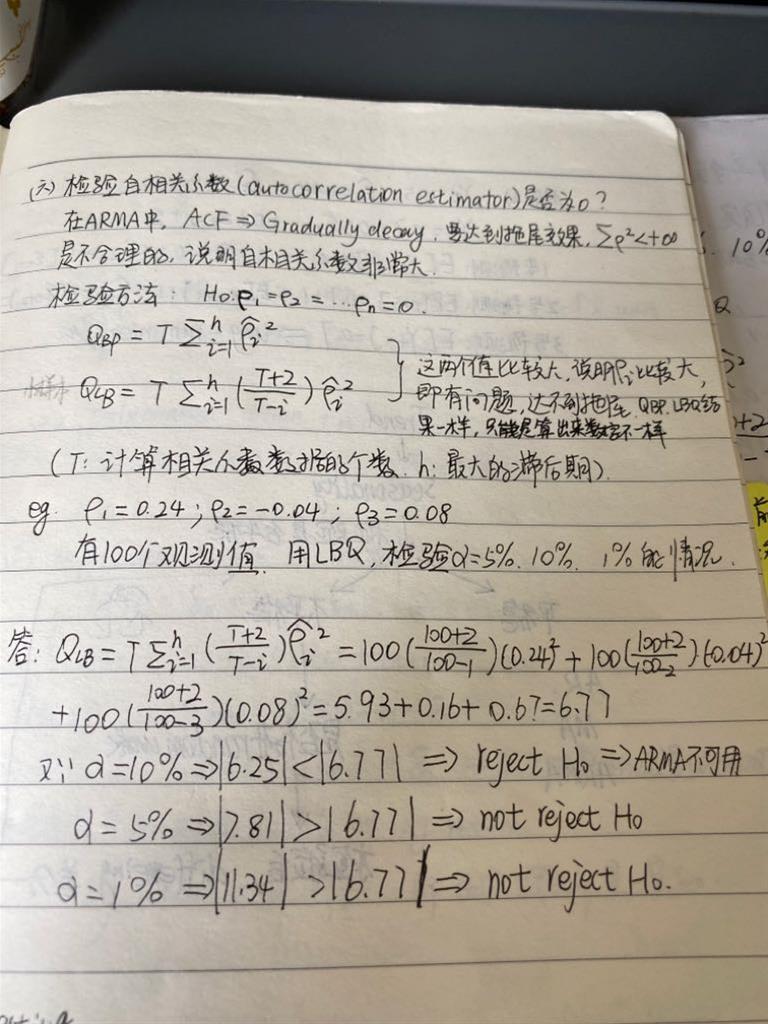 (六) 检验自相关系数(autocorrelation estimator)是否为0?
在ARMA中, ACF ⇒ Gradually decay, 要达到拖尾效果, Σρ²<+∞
是不合理的, 说明自相关系数非常大.
检验方法: H₀: ρ₁=ρ₂=…ρn=0.
Q_BP = T Σⁿᵢ₌₁ ρ̂ᵢ²
小样本 Q_LB = T Σⁿᵢ₌₁ (T+2/T-i) ρ̂ᵢ²
这两个值比较大, 说明ρᵢ比较大,
即有问题, 达不到拖尾, QBP, LBQ结
果一样, 只能是算出来数字不一样
(T: 计算相关系数数据的个数. h: 最大的滞后期).
eg. ρ₁=0.24; ρ₂=-0.04; ρ3=0.08
有100个观测值. 用LBQ, 检验α=5%. 10%. 1%的情况.
答: Q_LB = T Σʰᵢ₌₁ (T+2/T-i) ρ̂ᵢ² = 100(100+2/100-1)(0.24)² + 100(100+2/100-2)(-0.04)²
+100(100+2/100-3)(0.08)² = 5.93+0.16+0.67=6.77
对: α=10% ⇒ |6.25| < |6.77| ⇒ reject H₀ ⇒ ARMA不可用
α=5% ⇒ |7.81| > |6.77| ⇒ not reject H₀
α=1% ⇒ |11.34| > |6.77| ⇒ not reject H₀.
10%